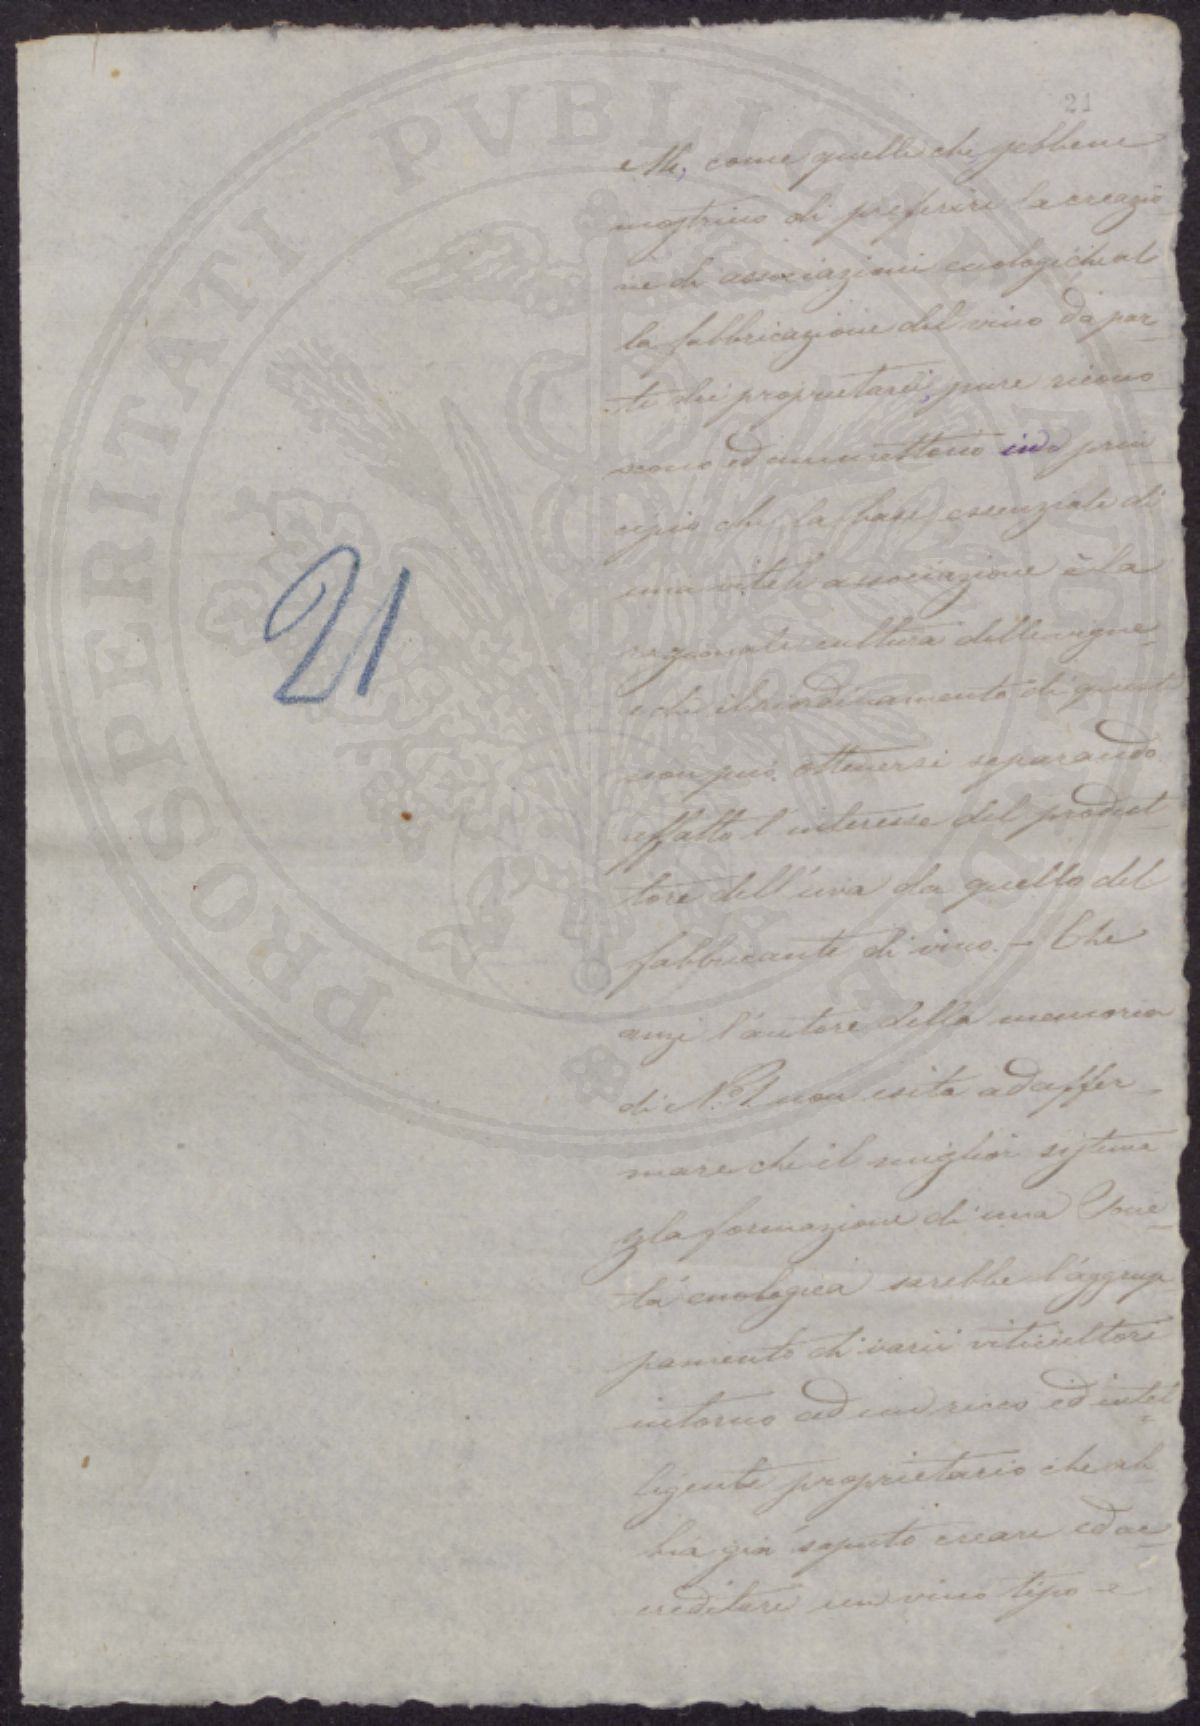 21
elle, come quelle che, sebbene
mostrino di preferire la creazio
ne di associazioni enologiche al
la fabbricazione del vino da par-
te dei proprietarii, pure ricono
scono ed ammettono in prin
cipio che la base essenziale di
una vitale associazione è la
razionale cultura delle vigne
e che il riordinamento di queste
non può ottenersi separando
affatto l'interesse del produt-
tore dell'uva da quello del
fabbricante di vino. - Che
anzi l'autore della memoria
di N.º 1 non esita ad affer-
mare che il miglior sistema
la formazione di una Socie-
tà enologica sarebbe l'aggrup
pamento di varii viticultori
intorno ad un ricco ed intel-
ligente proprietario che ab
bia già saputo creare ed ac-
creditare un vino tipo - e
21
PROSPERITATI PVBLICAE